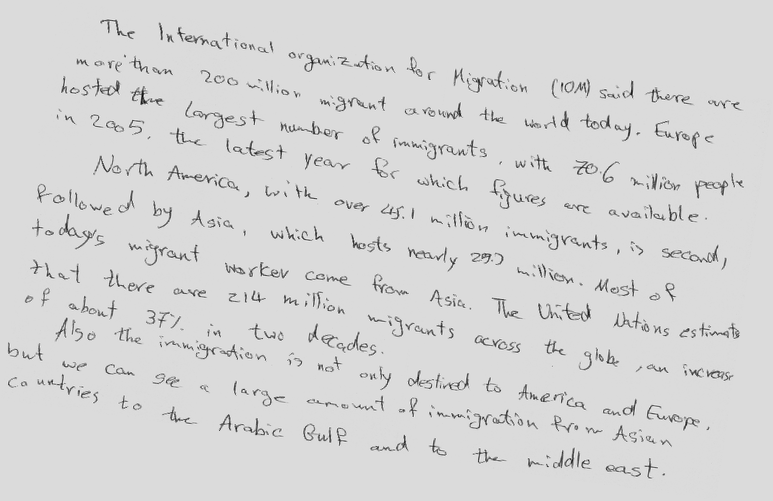 The International organization for Migration (IOM) said there are
more than 200 million migrant around the world today. Europe
hosted the largest number of immigrants, with 70.6 million people
in 2005, the latest year for which figures are available.
North America, with over 45.1 million immigrants, is second,
followed by Asia, which hosts nearly 25.3 million. Most of
todays migrant worker come from Asia. The United Nations estimate
that there are 214 million migrants across the globe, an increase
of about 37% in two decades.
Also the immigration is not only destined to America and Europe,
but we can see a large amount of immigration from Asian
countries to the Arabic Gulf and to the middle east.